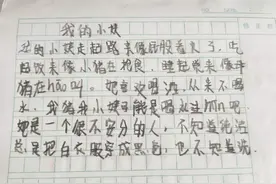 我的小妹
我的小妹走起路来像屁股着火了，吃
起饭来像小猪在抢食，睡起觉来像牛
猪在hāo叫。她喜欢喝酒，从来不喝
水，我猜我小妹可能是喝水过mǐn吧。
她是一个很不安分的人，不知道能洗
总是把白衣服穿成黑色，也不知道洗。